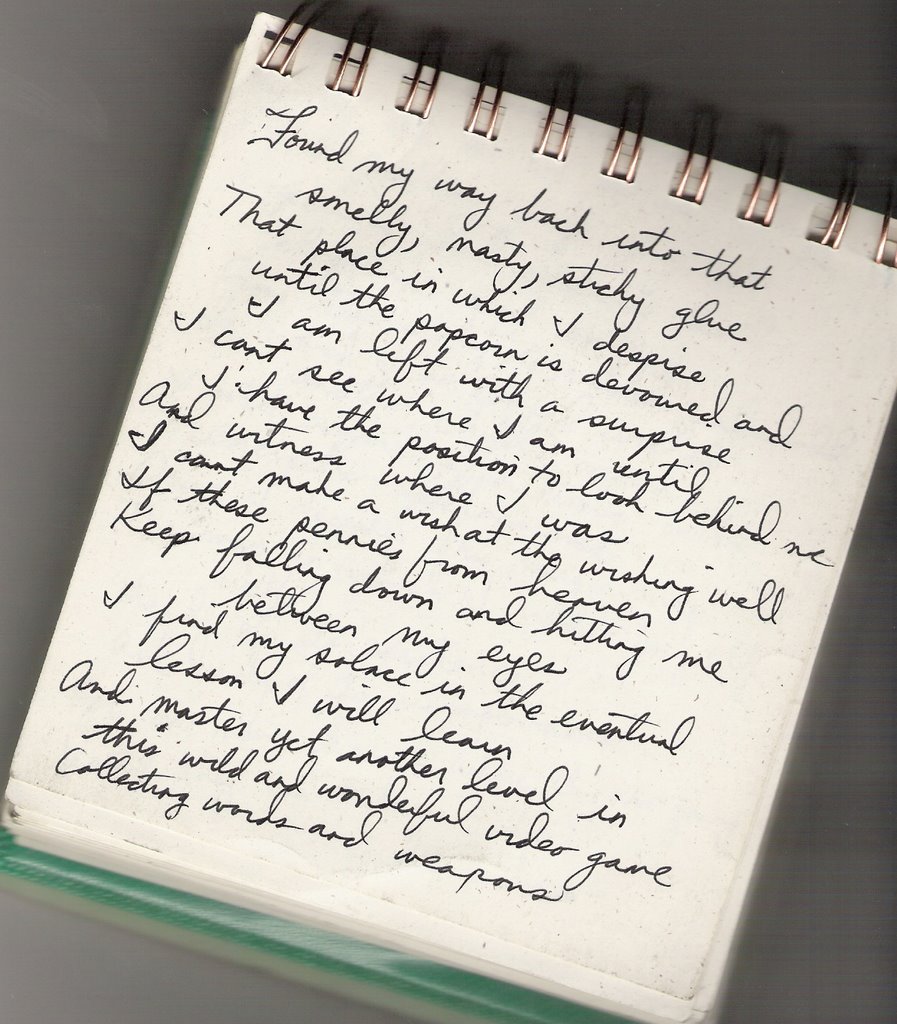 Found my way back into that
smelly, nasty, sticky glue
That place in which I despise
until the popcorn is devoured and
I am left with a surprise
I cant see where I am until
I have the position to look behind me
And witness where I was
I cant make a wish at the wishing well
If these pennies from heaven
Keep falling down and hitting me
between my eyes
I find my solace in the eventual
lesson I will learn
And master yet another level in
this wild and wonderful video game
Collecting words and weapons